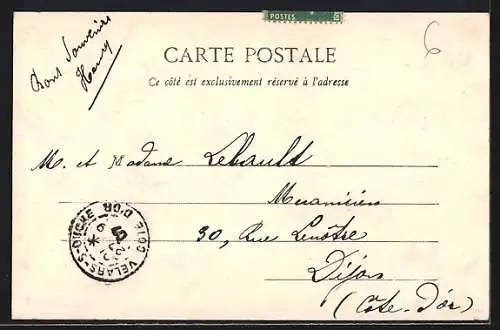 POSTES
6
CARTE POSTALE
Ce côté est exclusivement réservé à l'adresse
Bons Souvenirs
Henry
M. et Madame Lebault
Mécanicien
30, Rue Lenôtre
Dijon
(Côte-d'or)
VELARS-S-OUCHE COTE D'OR